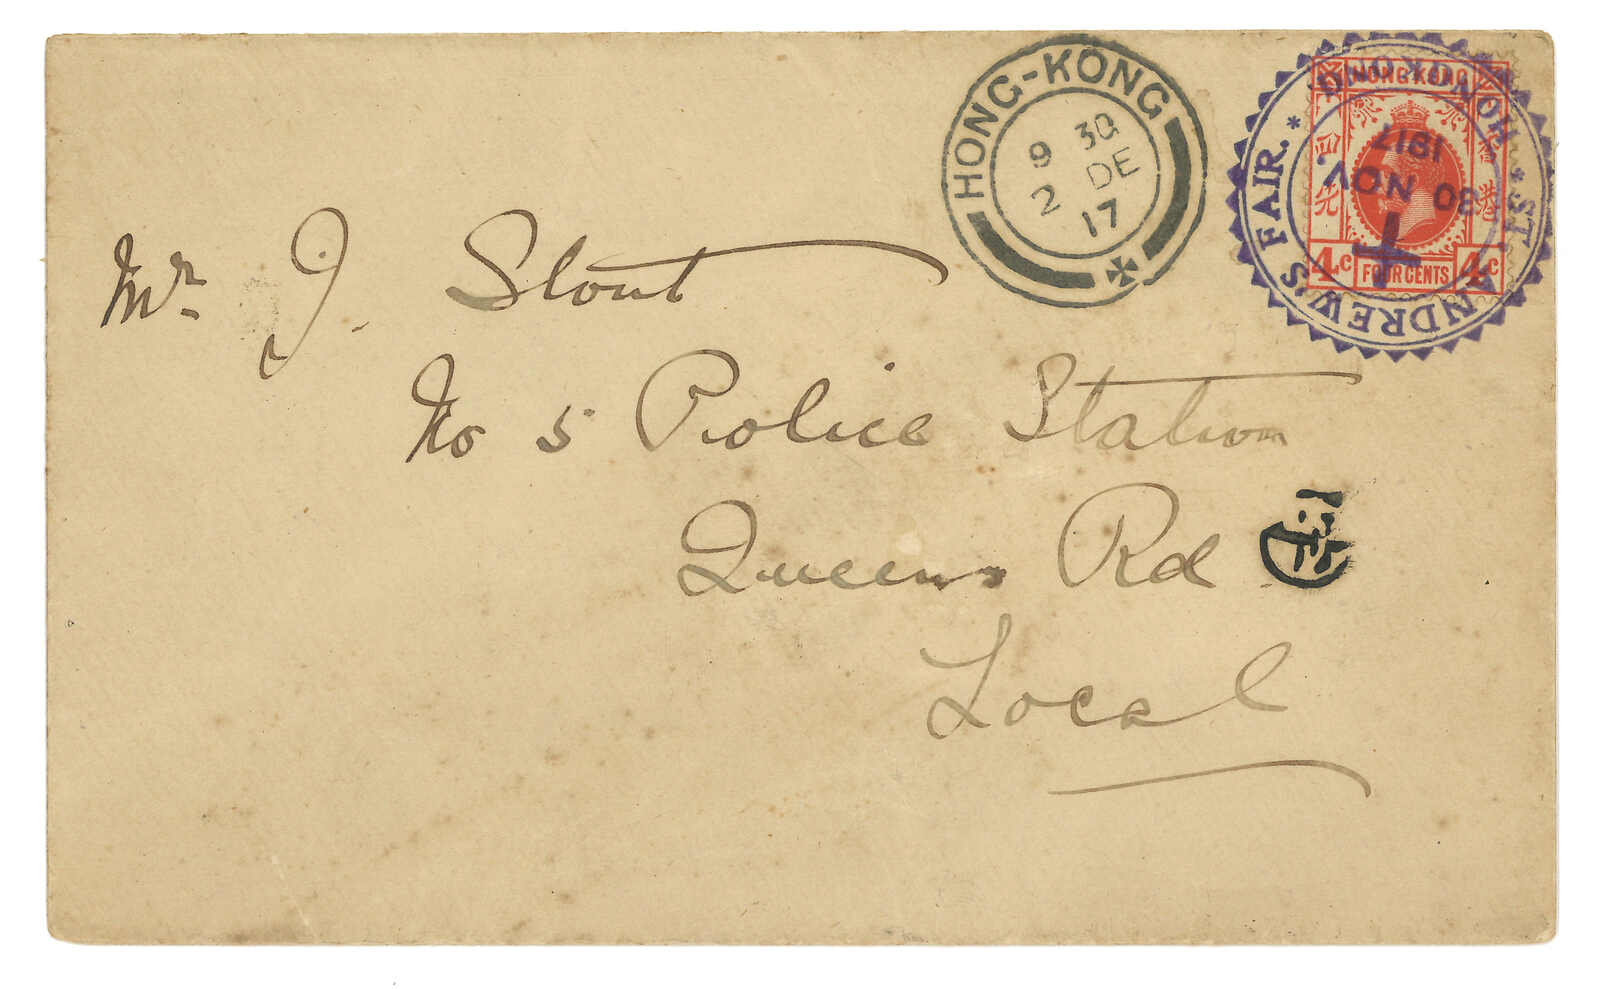 HONG-KONG
9 30
2 DE
17
ST. ANDREW'S FAIR. * HONGKONG *
30 NOV.
1917
HONG KONG
香港
四先
4c FOUR CENTS 4c
Mr. J. Stout
No 5 Police Station
Queens Rd
Local